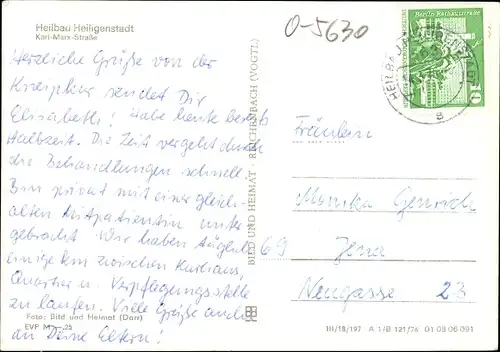 Heilbad Heiligenstadt
Karl-Marx-Straße
Herzliche Grüße von der
Kneippkur sendet Dir
Elisabeth! Habe heute bereits
Halbzeit. Die Zeit vergeht durch
die Behandlungen schnell.
Bin privat mit einer gleich-
alten Mitpatientin unter
gebracht. Wir haben täglich
einige km zwischen Kurhaus,
Quartier u. Verpflegungsstelle
zu laufen. Viele Grüße auch
an Deine Eltern!
Foto: Bild und Heimat (Dorr)
EVP M -,25
BILD UND HEIMAT · REICHENBACH (VOGTL)
0-5630
Berlin Rathausstraße
10
HEILBAD HEILIGENSTADT
a
Fräulein
Monika Genrich
69 Jena
Neugasse 23
III/18/197 A 1/B 121/76 01 08 06 091